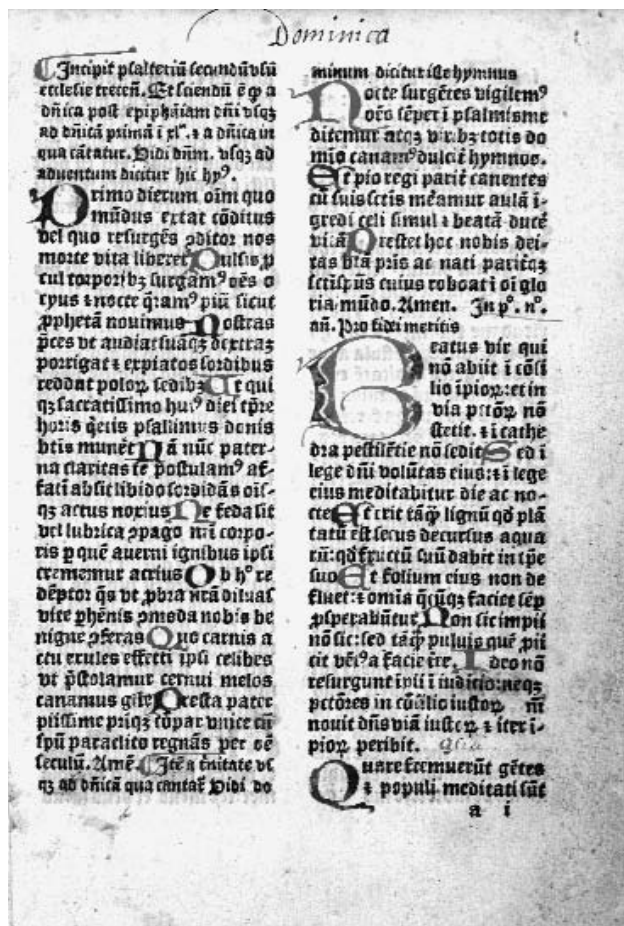 Dominica
Incipit psalteriū secundū vsū
ecclesie trecen̄. Et sciendū ē ꝙ a
dñica post epiphaniam dñi vsqꝫ
ad dñicā primā ī xlᵉ. ⁊ a dñica in
qua cātatur. Vidi dnm̄. vsqꝫ ad
aduentum dicitur hic hyꝰ.
Primo dierum oīm quo
mūdus extat cōditus
vel quo resurgēs ꝯditor nos
morte vita liberet Pulsis ꝓ
cul torporibꝫ surgamꝰ oēs o
cyus ⁊ nocte q̄ramꝰ piū sicut
ꝓphetā nouimus Nostras
p̄ces vt audiat suāqꝫ dextrā
porrigat ⁊ expiatos sordibus
reddat poloꝝ sedibꝫ Ut qui
qꝫ sacratissimo huiꝰ diei tp̄re
horis q̄etis psallimus donis
btīs munēt Nā nūc pater-
na claritas te p̄postulamꝰ af-
fatī absit libido sordidās oīs-
qꝫ actus noxius Ne feda sit
vel lubrica ꝯpago nr̄i corpo-
ris ꝑ quē auerni ignibus ipsi
crememur acrius Ob hᵒ re
dēptor q̄s vt ꝓbra nr̄ā diluas
vite phēnis ꝯmoda nobis be
nigne ꝯferas Quo carnis a
ctu exules effecti ipsi celibes
vt p̄stolamur cernui melos
canamus glīe Presta pater
piissime priqꝫ cōpar vnice cū
spū paraclito regnās per oē
seculū. Amē. Itē a trinitate vs
qꝫ ad dñicā qua cantat̄ Vidi do
minum dicitur iste hymnus
Nocte surgētes vigilemꝰ
oēs sēper ī psalmis me
ditemur atqꝫ viribꝫ totis do
mīo canamꝰ dulcit̄ hymnos.
Ut pio regi parit̄ canentes
cū suis sctīs meamur aulā ī-
gredi celi simul ⁊ beatā ducē
vitā Prestet hoc nobis dei-
tas btā pr̄is ac nati paritēqꝫ
sctīsp̄ūs cuius roboat ī oī glo
ria mūdo. Amen. In pᵒ. nᵒ.
añ. Pro fidei meritis
Beatus vir qui
nō abiit ī cōsi
lio īpioꝝ: et in
via pctōꝝ nō
stetit. ⁊ ī cathe
dra pestilētie nō sedit Sed ī
lege dñi volūtas eius: ⁊ ī lege
eius meditabitur die ac no-
cte Et erit tāqꝫ lignū qd̄ plā
tatū est secus decursus aqua
rū: qd̄ fructū suū dabit in tp̄e
suo Et folium eius non de
fluet: ⁊ omīa q̄cūqꝫ faciet sēp̄
ꝓsperabūtur Non sic impii
nō sic: sed tāqꝫ puluis quē ꝓii
cit vētꝰ a facie tre Ideo nō
resurgunt īpii ī iudicio: neqꝫ
pctōres in cōsilio iustoꝝ
nouit dn̄s viā iustoꝝ ⁊ iter ī-
pioꝝ peribit.
Quare fremuerūt gētes
⁊ populi meditati sūt
a i